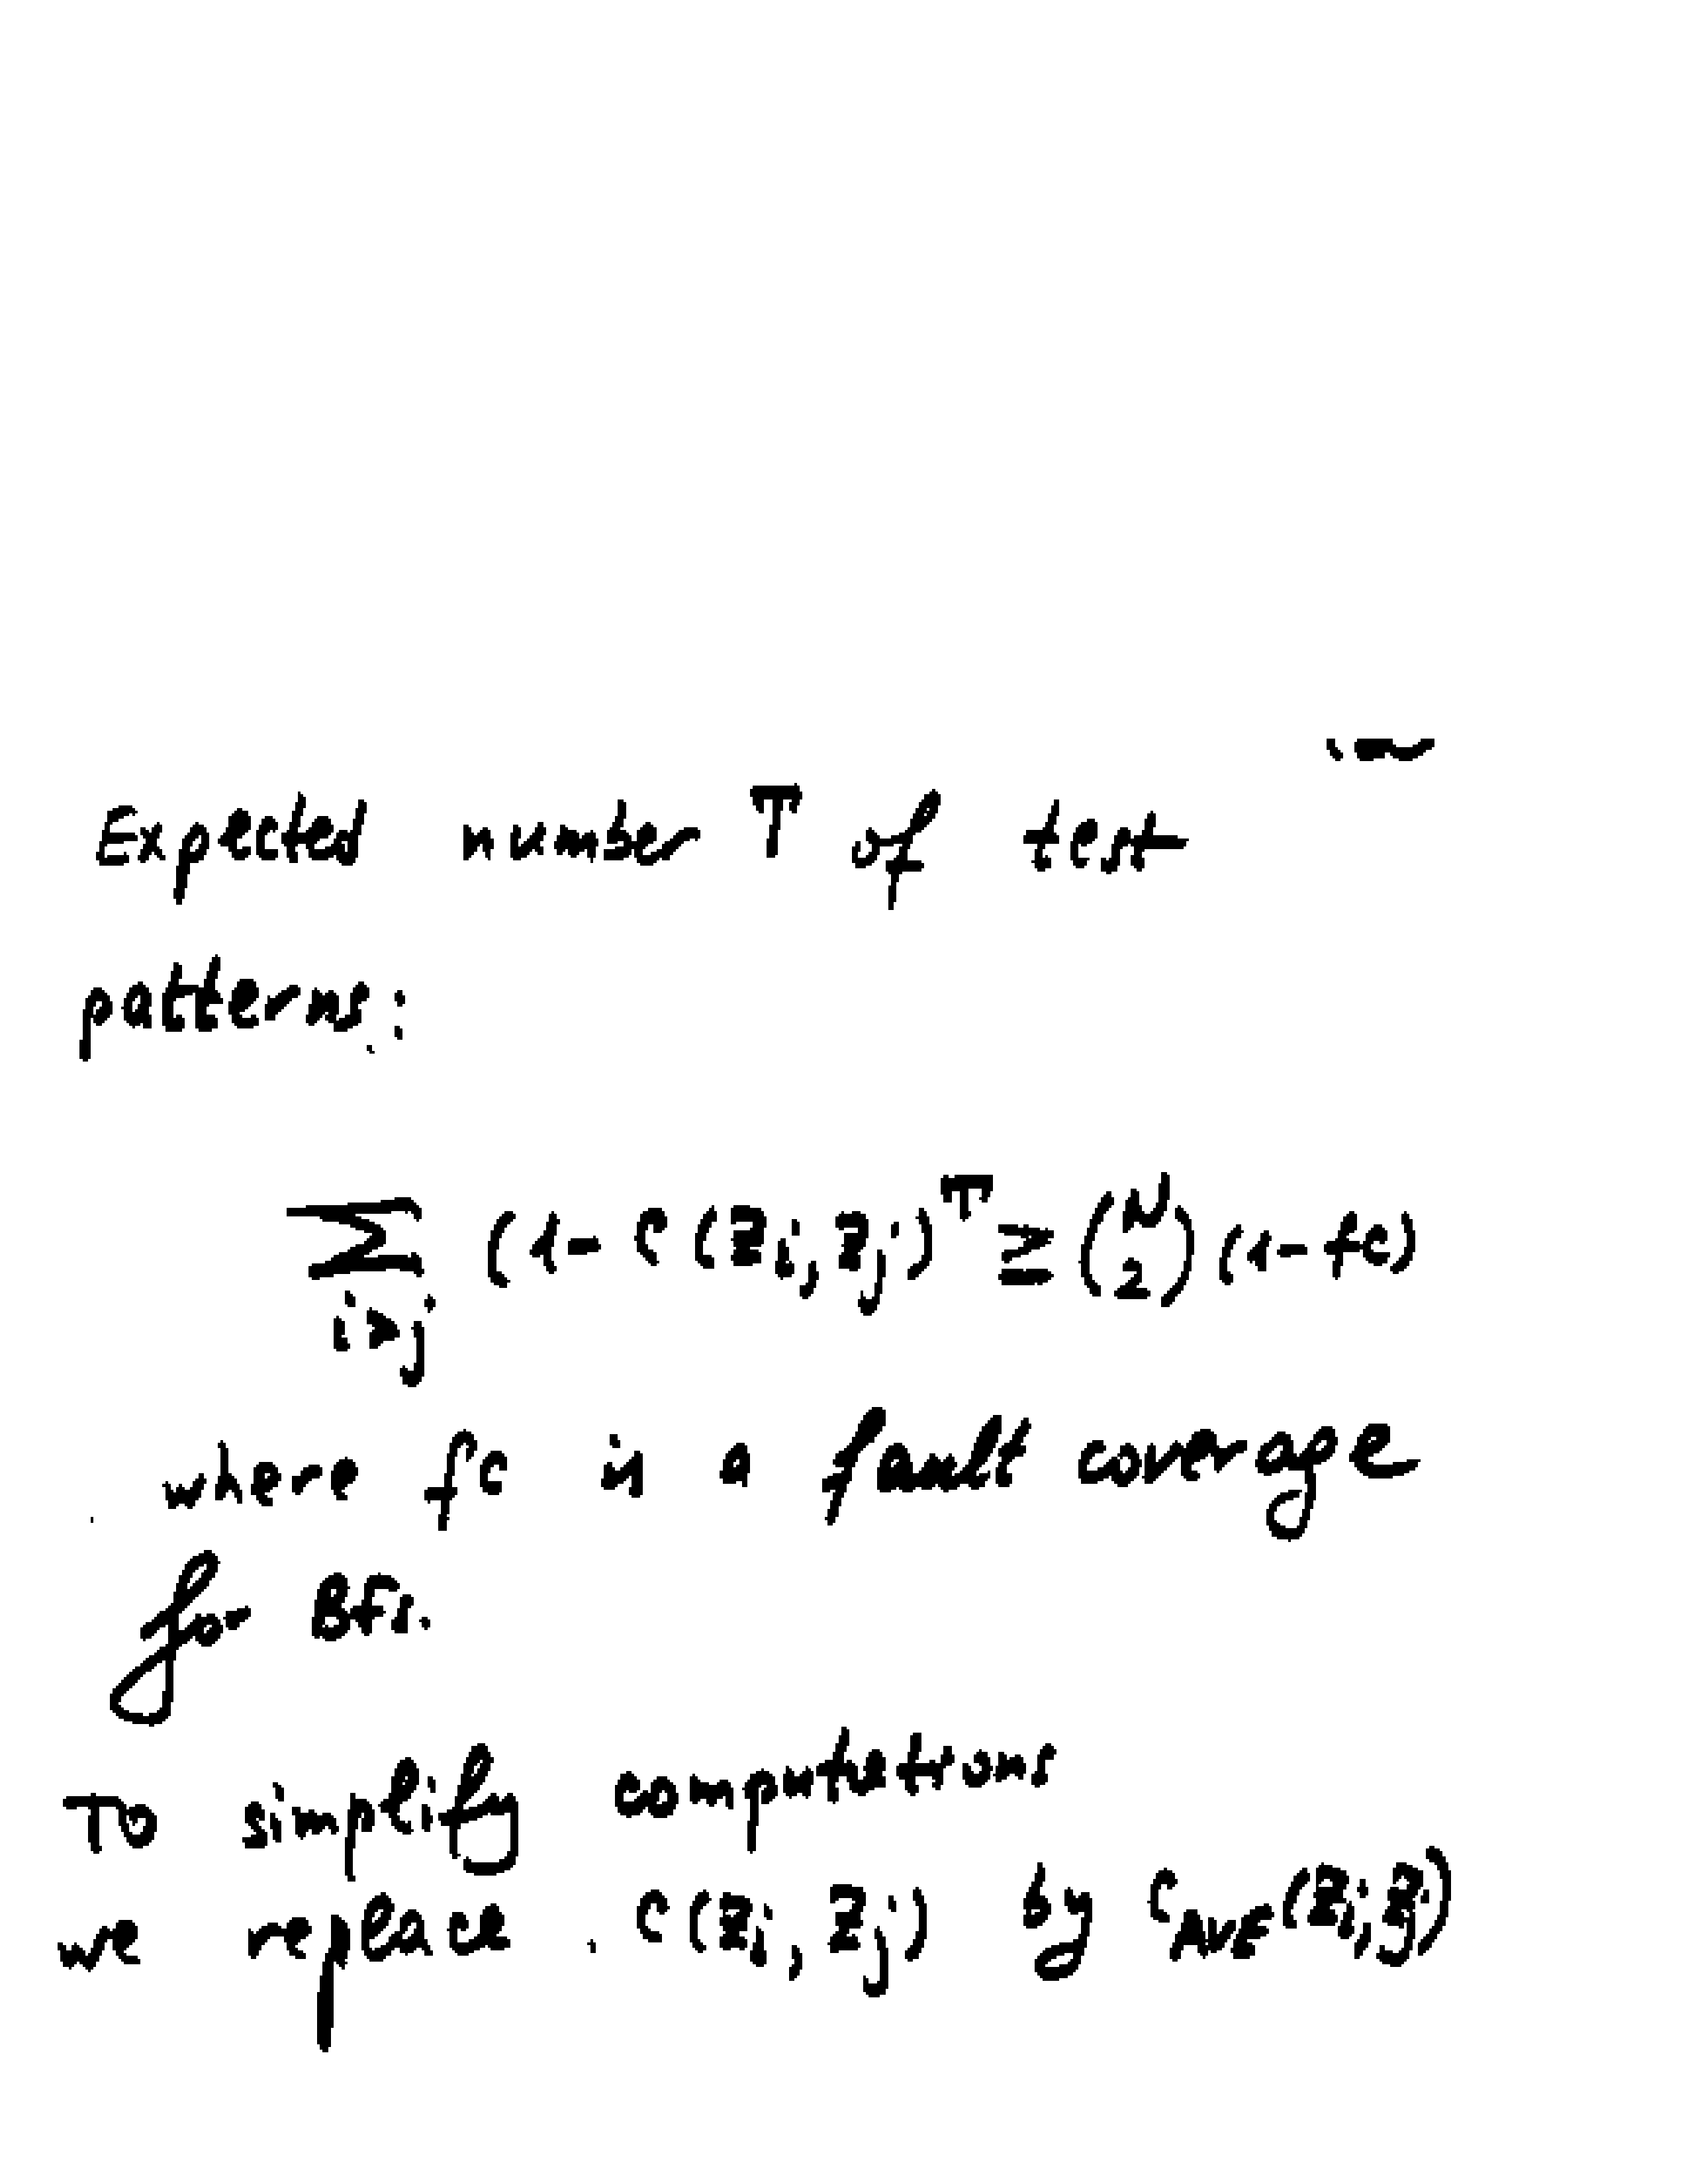 Expected number T of test
patterns:
∑ (1- C (Zi, Zj)^T ≥ (N 2) (1- fc)
i>j
where fc is a fault coverage
for BFs.
To simplify computations
we replace . C(Zi, Zj) by C_AVE(Zi, Zj)